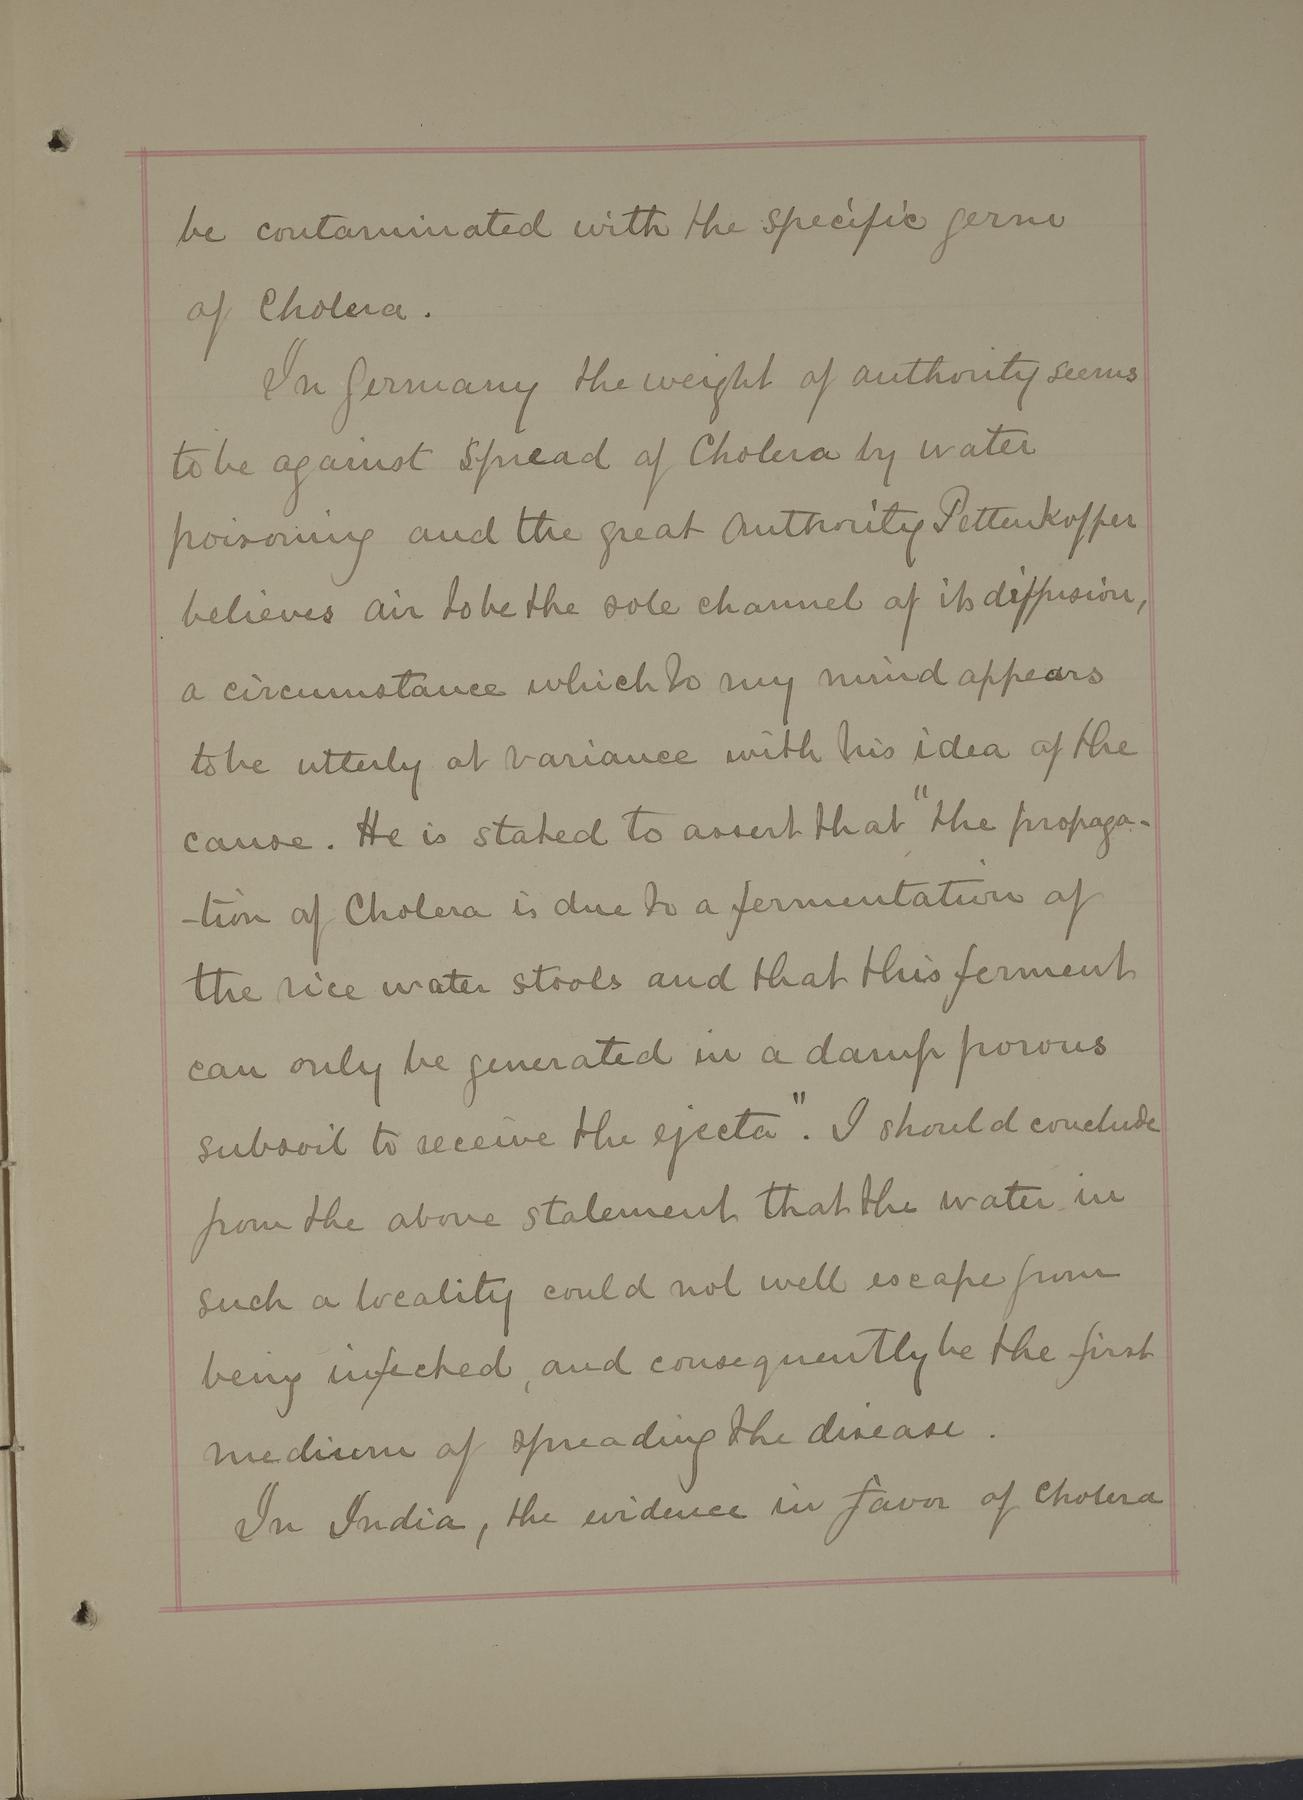 be contaminated with the specific germ
of Cholera.
In Germany the weight of authority seems
to be against spread of Cholera by water
poisoning and the great authority Pettenkoffer
believes air to be the sole channel of its diffusion,
a circumstance which to my mind appears
to be utterly at variance with his idea of the
cause. He is stated to assert that "the propaga-
-tion of Cholera is due to a fermentation of
the rice water stools and that this ferment
can only be generated in a damp porous
subsoil to receive the ejecta". I should conclude
from the above statement that the water in
such a locality could not well escape from
being infected, and consequently be the first
medium of spreading the disease.
In India, the evidence in favor of Cholera